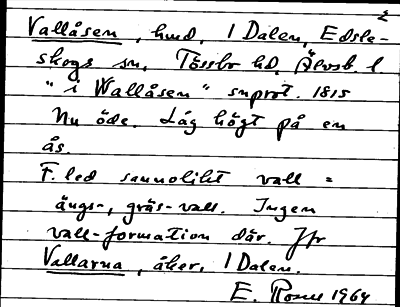 2
Vallåsen, hmd, 1 Dalen, Edsle-
skogs sn, Tössbo hd, Älvsb. l.
"i Wallåsen" snprot. 1815
Nu öde. Låg högt på en
ås.
F. led sannolikt vall =
ängs-, gräs-vall. Ingen
vall-formation där. Jfr
Vallarna, åker, 1 Dalen.
E. 1964